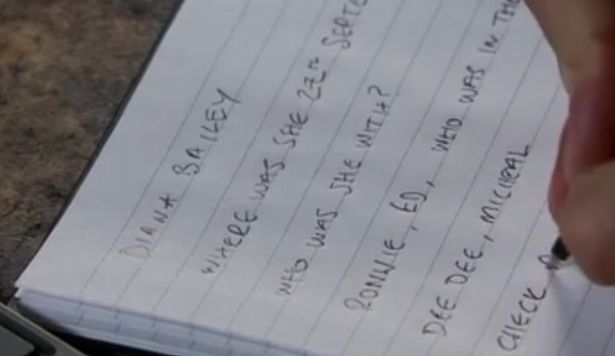 DIANA BAILEY
WHERE WAS SHE 22ND SEPTE
WHO WAS SHE WITH?
RONNIE, ED, WHO WAS IN THE
DEE DEE, MICHEAL
CHECK